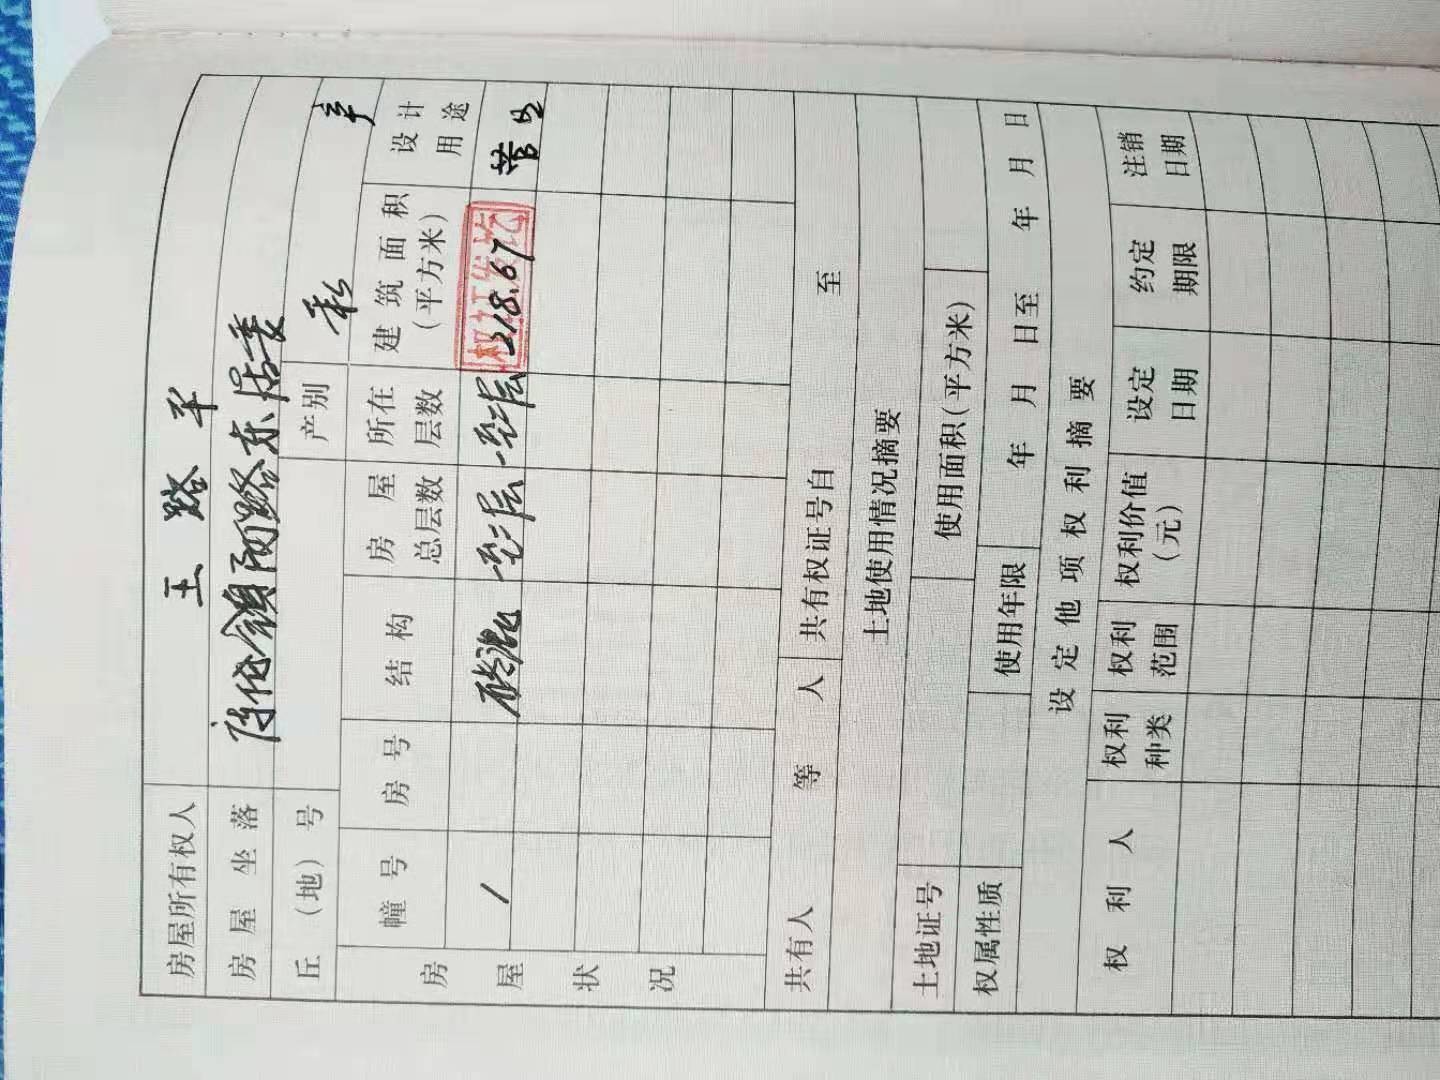 房屋所有权人 王路平
房屋坐落 陈佐镇丽路东居委
丘（地）号 产别 私产
房屋状况 幢号 房号 结构 房屋总层数 所在层数 建筑面积（平方米） 设计用途
1 砖混 一至二层 一至二层 218.67
共有人 等 人 共有权证号自 至
土地使用情况摘要
土地证号 使用面积（平方米）
权属性质 使用年限 年 月 日至 年 月 日
设定他项权利摘要
权利人 权利种类 权利范围 权利价值（元） 设定日期 约定期限 注销日期